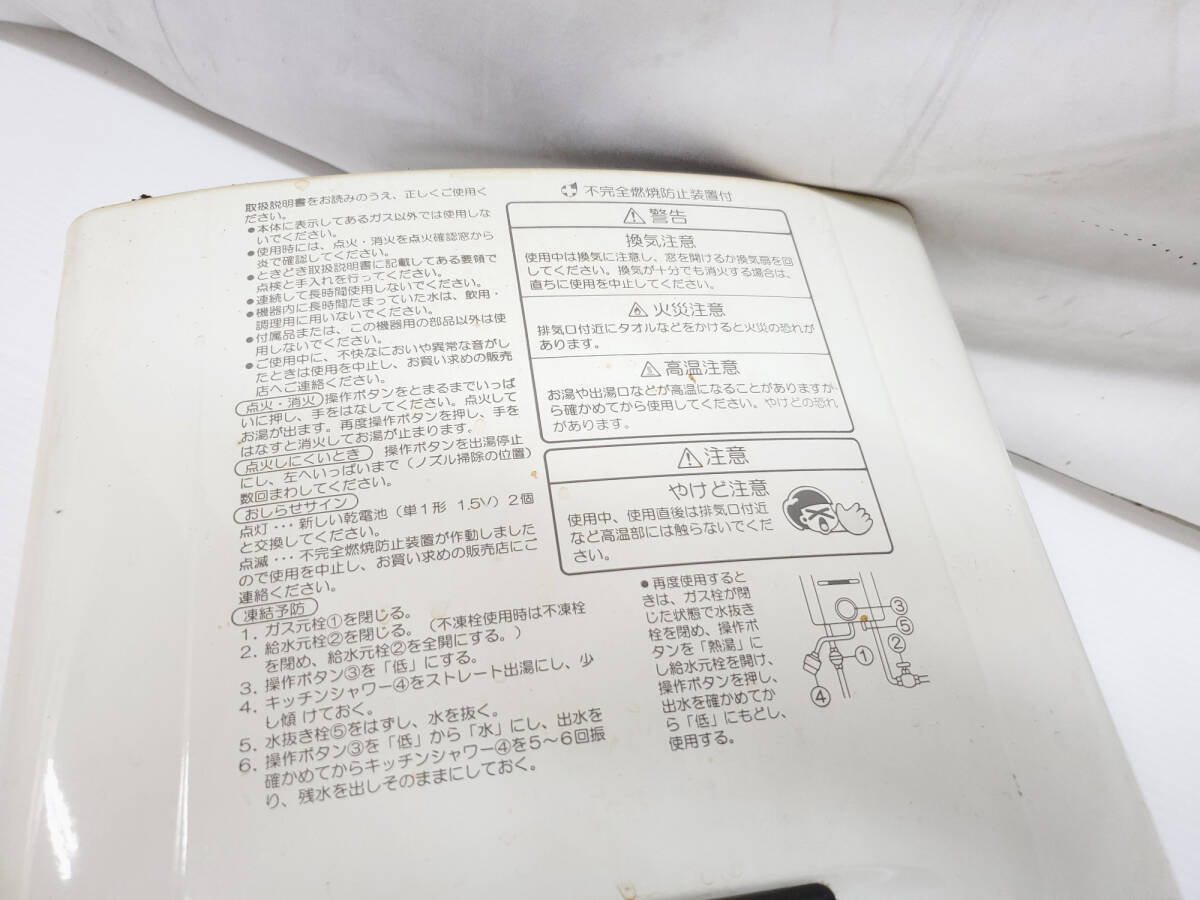 取扱説明書をお読みのうえ、正しくご使用く
ださい。
●本体に表示してあるガス以外では使用しな
いでください。
●使用時には、点火・消火を点火確認窓から
炎で確認してください。
●ときどき取扱説明書に記載してある要領で
点検と手入れを行ってください。
●連続して長時間使用しないでください。
●機器内に長時間たまっていた水は、飲用・
調理用に用いないでください。
●付属品または、この機器用の部品以外は使
用しないでください。
●ご使用中に、不快なにおいや異常な音がし
たときは使用を中止し、お買い求めの販売
店へご連絡ください。
点火・消火 操作ボタンをとまるまでいっぱ
いに押し、手をはなしてください。点火して
お湯が出ます。再度操作ボタンを押し、手を
はなすと消火してお湯が止まります。
点火しにくいとき 操作ボタンを出湯停止
にし、左へいっぱいまで（ノズル掃除の位置）
数回まわしてください。
おしらせサイン
点灯・・・新しい乾電池（単1形 1.5V）2個
と交換してください。
点滅・・・不完全燃焼防止装置が作動しました
ので使用を中止し、お買い求めの販売店にご
連絡ください。
凍結予防
1. ガス元栓①を閉じる。
2. 給水元栓②を閉じる。（不凍栓使用時は不凍栓
を閉め、給水元栓②を全開にする。）
3. 操作ボタン③を「低」にする。
4. キッチンシャワー④をストレート出湯にし、少
し傾けておく。
5. 水抜き栓⑤をはずし、水を抜く。
6. 操作ボタン③を「低」から「水」にし、出水を
確かめてからキッチンシャワー④を5～6回振
り、残水を出しそのままにしておく。
不完全燃焼防止装置付
⚠警告
換気注意
使用中は換気に注意し、窓を開けるか換気扇を回
してください。換気が十分でも消火する場合は、
直ちに使用を中止してください。
火災注意
排気口付近にタオルなどをかけると火災の恐れが
あります。
高温注意
お湯や出湯口などが高温になることがありますか
ら確かめてから使用してください。やけどの恐れ
があります。
⚠注意
やけど注意
使用中、使用直後は排気口付近
など高温部には触らないでくだ
さい。
●再度使用すると
きは、ガス栓が閉
じた状態で水抜き
栓を閉め、操作ボ
タンを「熱湯」に
し給水元栓を開け、
操作ボタンを押し、
出水を確かめてか
ら「低」にもどし、
使用する。
③
⑤
②
①
④